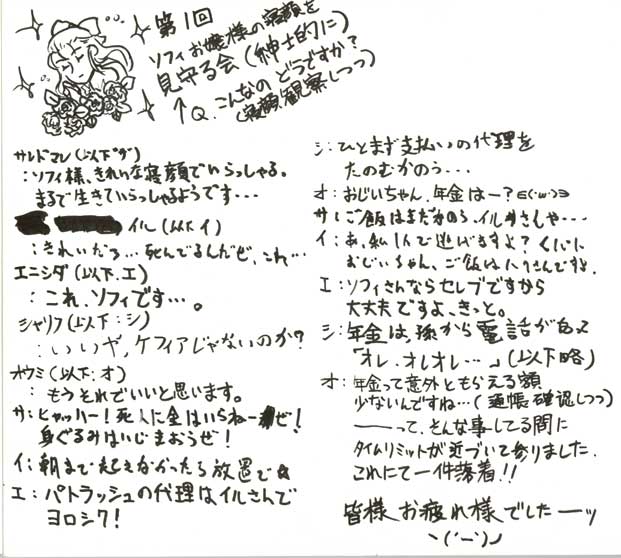 第1回
ソフィお嬢様の寝顔を
見守る会(紳士的に)
↑Q.こんなのどうですか?
(寝顔観察しつつ)
サルドマレ(以下"サ")
:ソフィ様、きれいな寝顔でいらっしゃる。
まるで生きていらっしゃるようです…
イル(以下イ)
:きれいだろ…死んでるんだぜ、これ…
エニシダ(以下.エ)
:これ、ソフィです…。
シャリフ(以下:シ)
:いいや、ケフィアじゃないのか?
オウミ(以下:オ)
:もうそれでいいと思います。
サ:ヒャッハー!死人に金はいらねーぜ!
身ぐるみはいじまおうぜ!
イ:朝まで起きなかったら放置で☆
エ:パトラッシュの代理はイルさんで
ヨロシク!
シ:ひとまず支払いの代理を
たのむかのう…
オ:おじいちゃん、年金はー?∈(・ω・)∋
サ:ご飯はまだかのう、イルさんや…
イ:あ、私1人で逃げますよ?
おじいちゃん、ご飯は
エ:ソフィさんならセレブですから
大丈夫ですよ、きっと。
シ:年金は、孫から電話があって
「オレ、オレオレ…」(以下略)
オ:年金って意外ともらえる額
少ないんですね…(通帳確認しつつ)
――って、そんな事してる間に
タイムリミットが近づいて参りました.
これにて一件落着!!
皆様お疲れ様でしたーッ
ヽ(´ー`)ノ